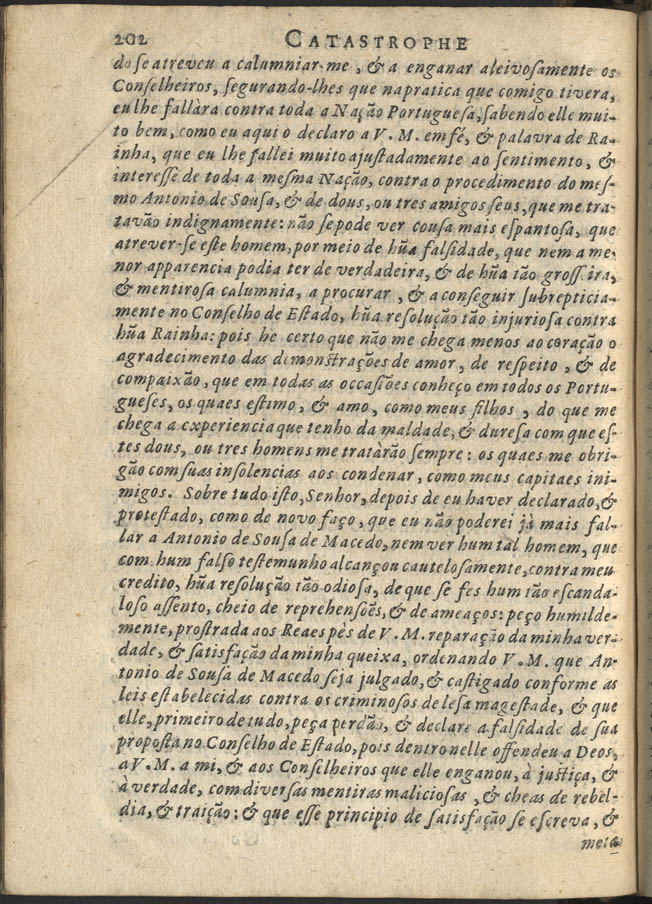 202 CATASTROPHE
do se atreveu a calumniar-me, & a enganar aleivoſamente os
Conſelheiros, ſegurando-lhes que na pratica que comigo tivera,
eu lhe fallàra contra toda a Nação Portugueſa, ſabendo elle mui-
to bem, como eu aqui o declaro a V. M. em fé, & palavra de Ra-
inha, que eu lhe fallei muito ajuſtadamente ao ſentimento, &
intereſſe de toda a meſma Nação, contra o procedimento do meſ-
mo Antonio de Souſa, & de dous, ou tres amigos ſeus, que me tra-
tavão indignamente: não ſe pode ver couſa mais eſpantoſa, que
atrever-ſe eſte homem, por meio de hũa falſidade, que nem a me-
nor apparencia podia ter de verdadeira, & de hũa tão groſſeira,
& mentiroſa calumnia, a procurar, & a conſeguir ſubrepticia-
mente no Conſelho de Eſtado, hũa reſolução tão injurioſa contra
hũa Rainha: pois he certo que não me chega menos ao coração o
agradecimento das demonſtrações de amor, de reſpeito, & de
compaixão, que em todas as occaſiões conheço em todos os Portu-
gueſes, os quaes eſtimo, & amo, como meus filhos, do que me
chega a experiencia que tenho da maldade, & dureſa com que eſ-
tes dous, ou tres homens me tratàrão ſempre: os quaes me obri-
gão com ſuas inſolencias aos condenar, como meus capitaes ini-
migos. Sobre tudo iſto, Senhor, depois de eu haver declarado, &
proteſtado, como de novo faço, que eu não poderei jà mais fal-
lar a Antonio de Souſa de Macedo, nem ver hum tal homem, que
com hum falſo teſtemunho alcançou cautelosamente, contra meu
credito, hũa reſolução tão odioſa, de que ſe fes hum tão eſcanda-
loſo aſſento, cheio de reprehenſoẽs, & de ameaços: peço humilde-
mente, proſtrada aos Reaes pès de V. M. reparação da minha ver-
dade, & ſatisfação da minha queixa, ordenando V. M. que An-
tonio de Souſa de Macedo ſeja julgado, & caſtigado conforme as
leis eſtabelecidas contra os criminoſos de leſa mageſtade, & que
elle, primeiro de tudo, peça perdão, & declare a falſidade de ſua
propoſta no Conſelho de Eſtado, pois dentro nelle offendeu a Deos,
a V. M. a mi, & aos Conſelheiros que elle enganou, à juſtiça, &
à verdade, com diverſas mentiras malicioſas, & cheas de rebel-
dia, & traição: & que eſſe principio de ſatisfação ſe eſcreva, &
meta